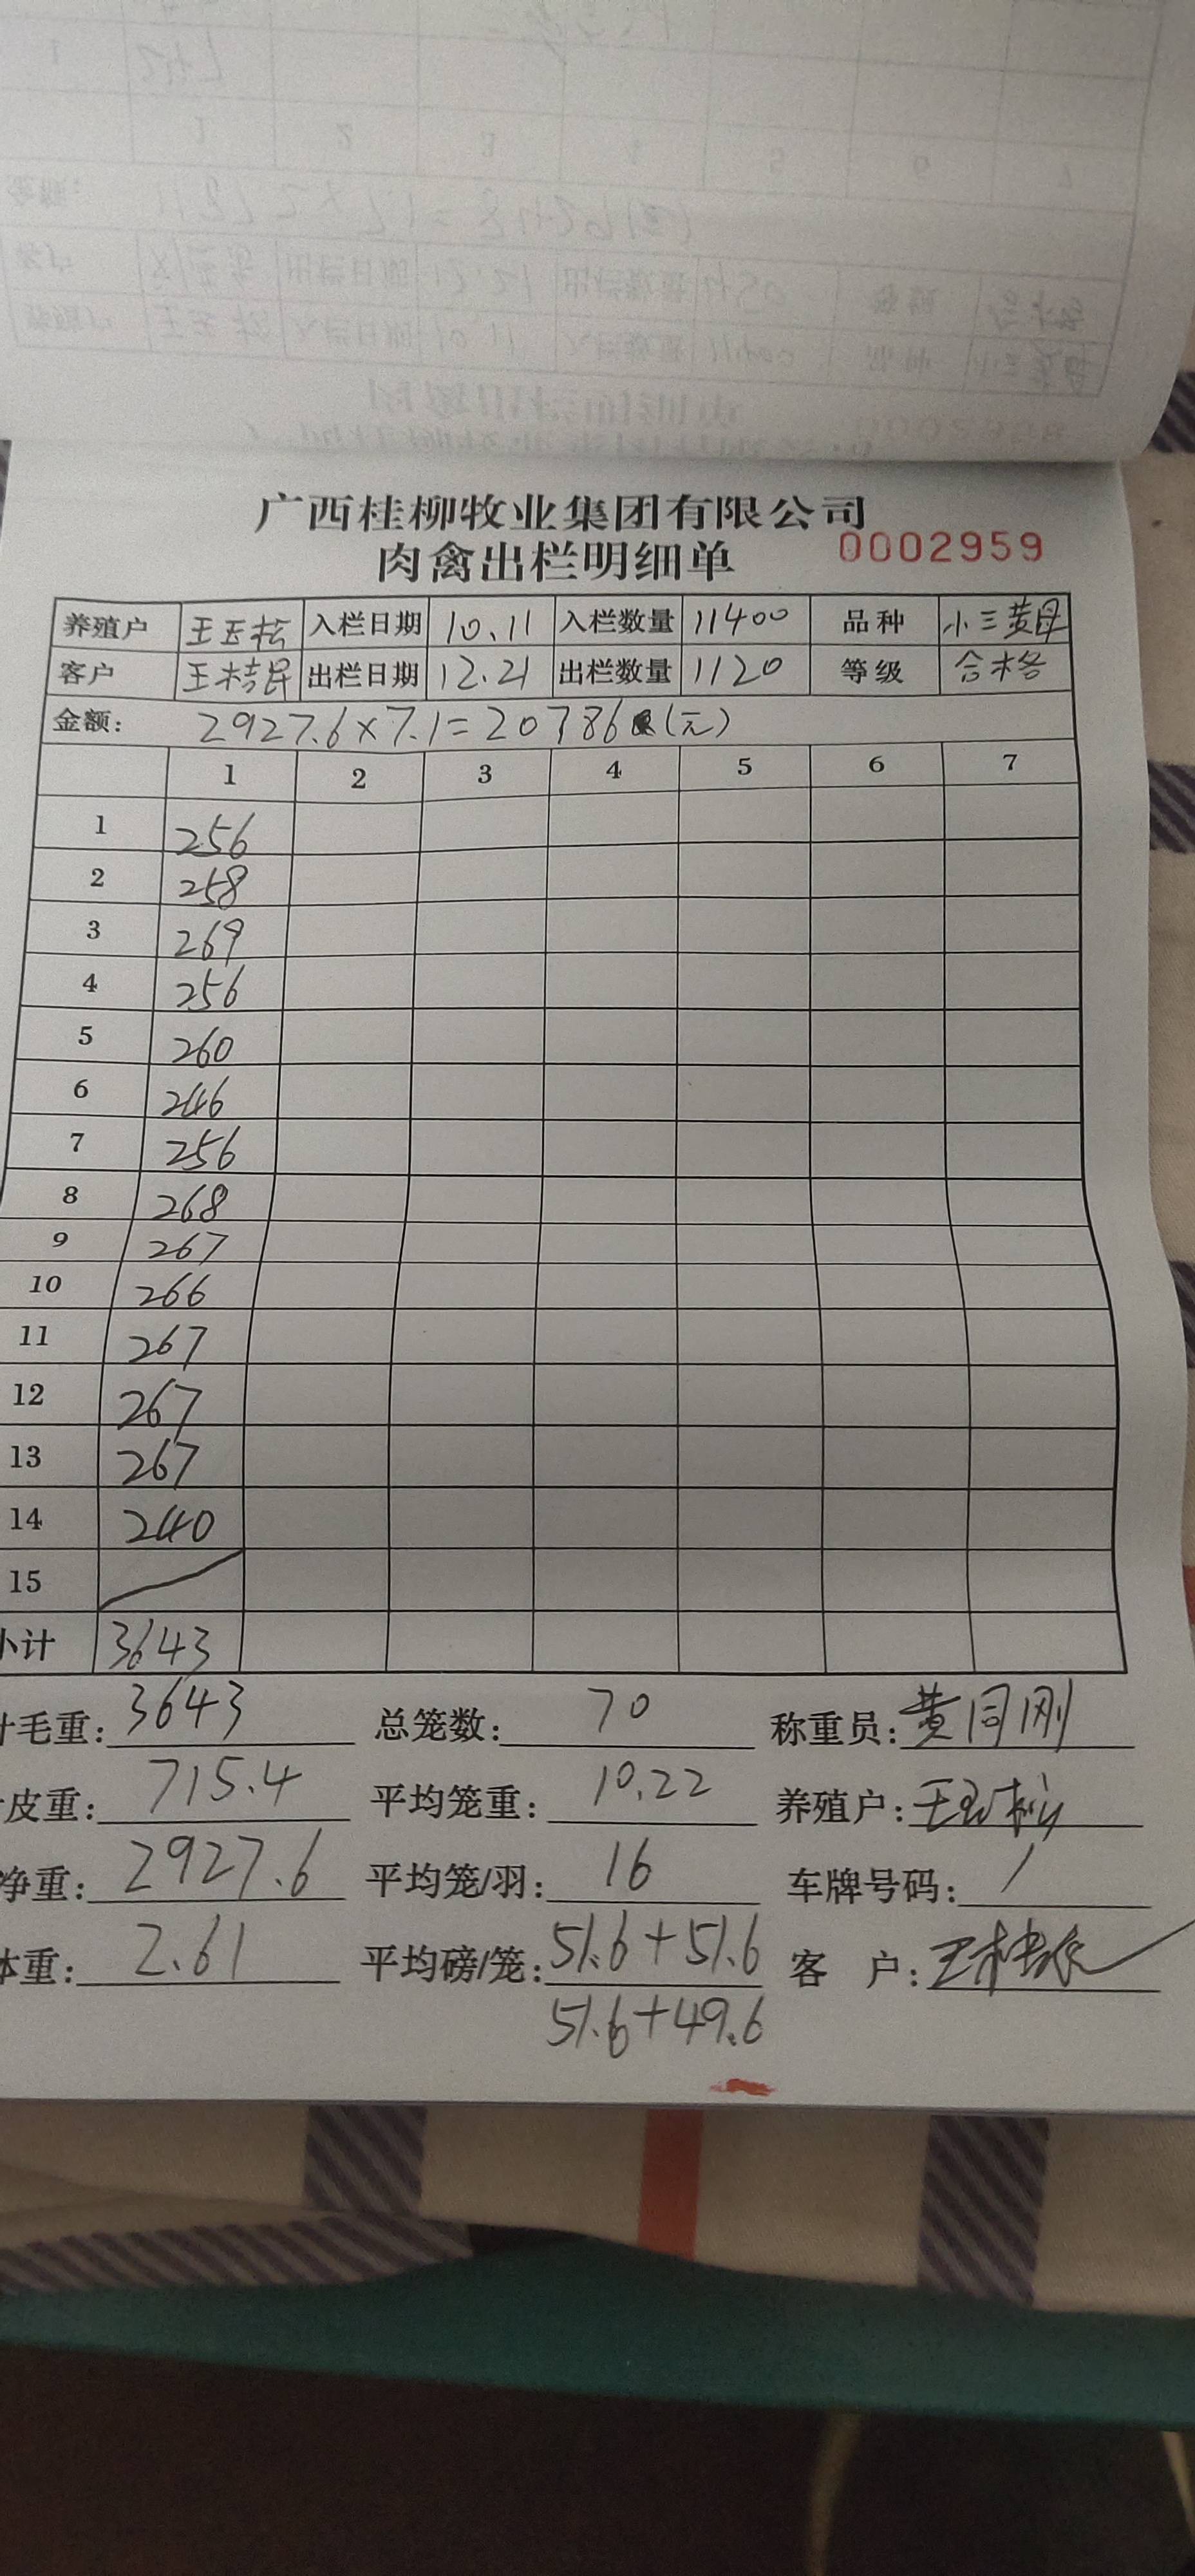 广西桂柳牧业集团有限公司
肉禽出栏明细单 0002959
养殖户 王玉松 入栏日期 10.11 入栏数量 11400 品种 小三黄母
客户 出栏日期 12.21 出栏数量 1120 等级 合格
金额: 2927.6×7.1=20786 (元)
1 2 3 4 5 6 7
1 256
2 258
3 269
4 256
5 260
6 246
7 256
8 268
9 267
10 266
11 267
12 267
13 267
14 240
15
小计 3643
毛重: 3643 总笼数: 70 称重员: 黄同刚
皮重: 715.4 平均笼重: 10.22 养殖户: 王玉松
净重: 2927.6 平均笼/羽: 16 车牌号码: /
体重: 2.61 平均磅/笼: 51.6+51.6 客 户:
51.6+49.6